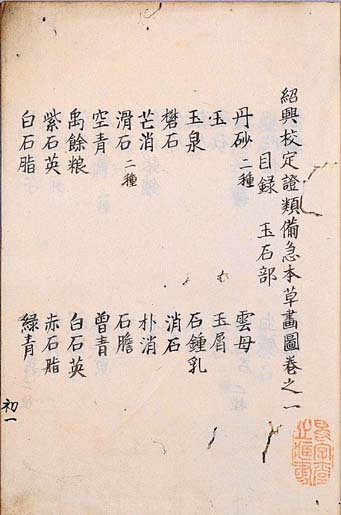 紹興校定證類備急本草畫圖卷之一
目録 玉石部
丹砂二種 雲母
玉 玉屑
玉泉 石鍾乳
礬石 消石
芒消 朴消
滑石二種 石膽
空青 曾青
禹餘粮 白石英
紫石英 赤石脂
白石脂 緑青
初一